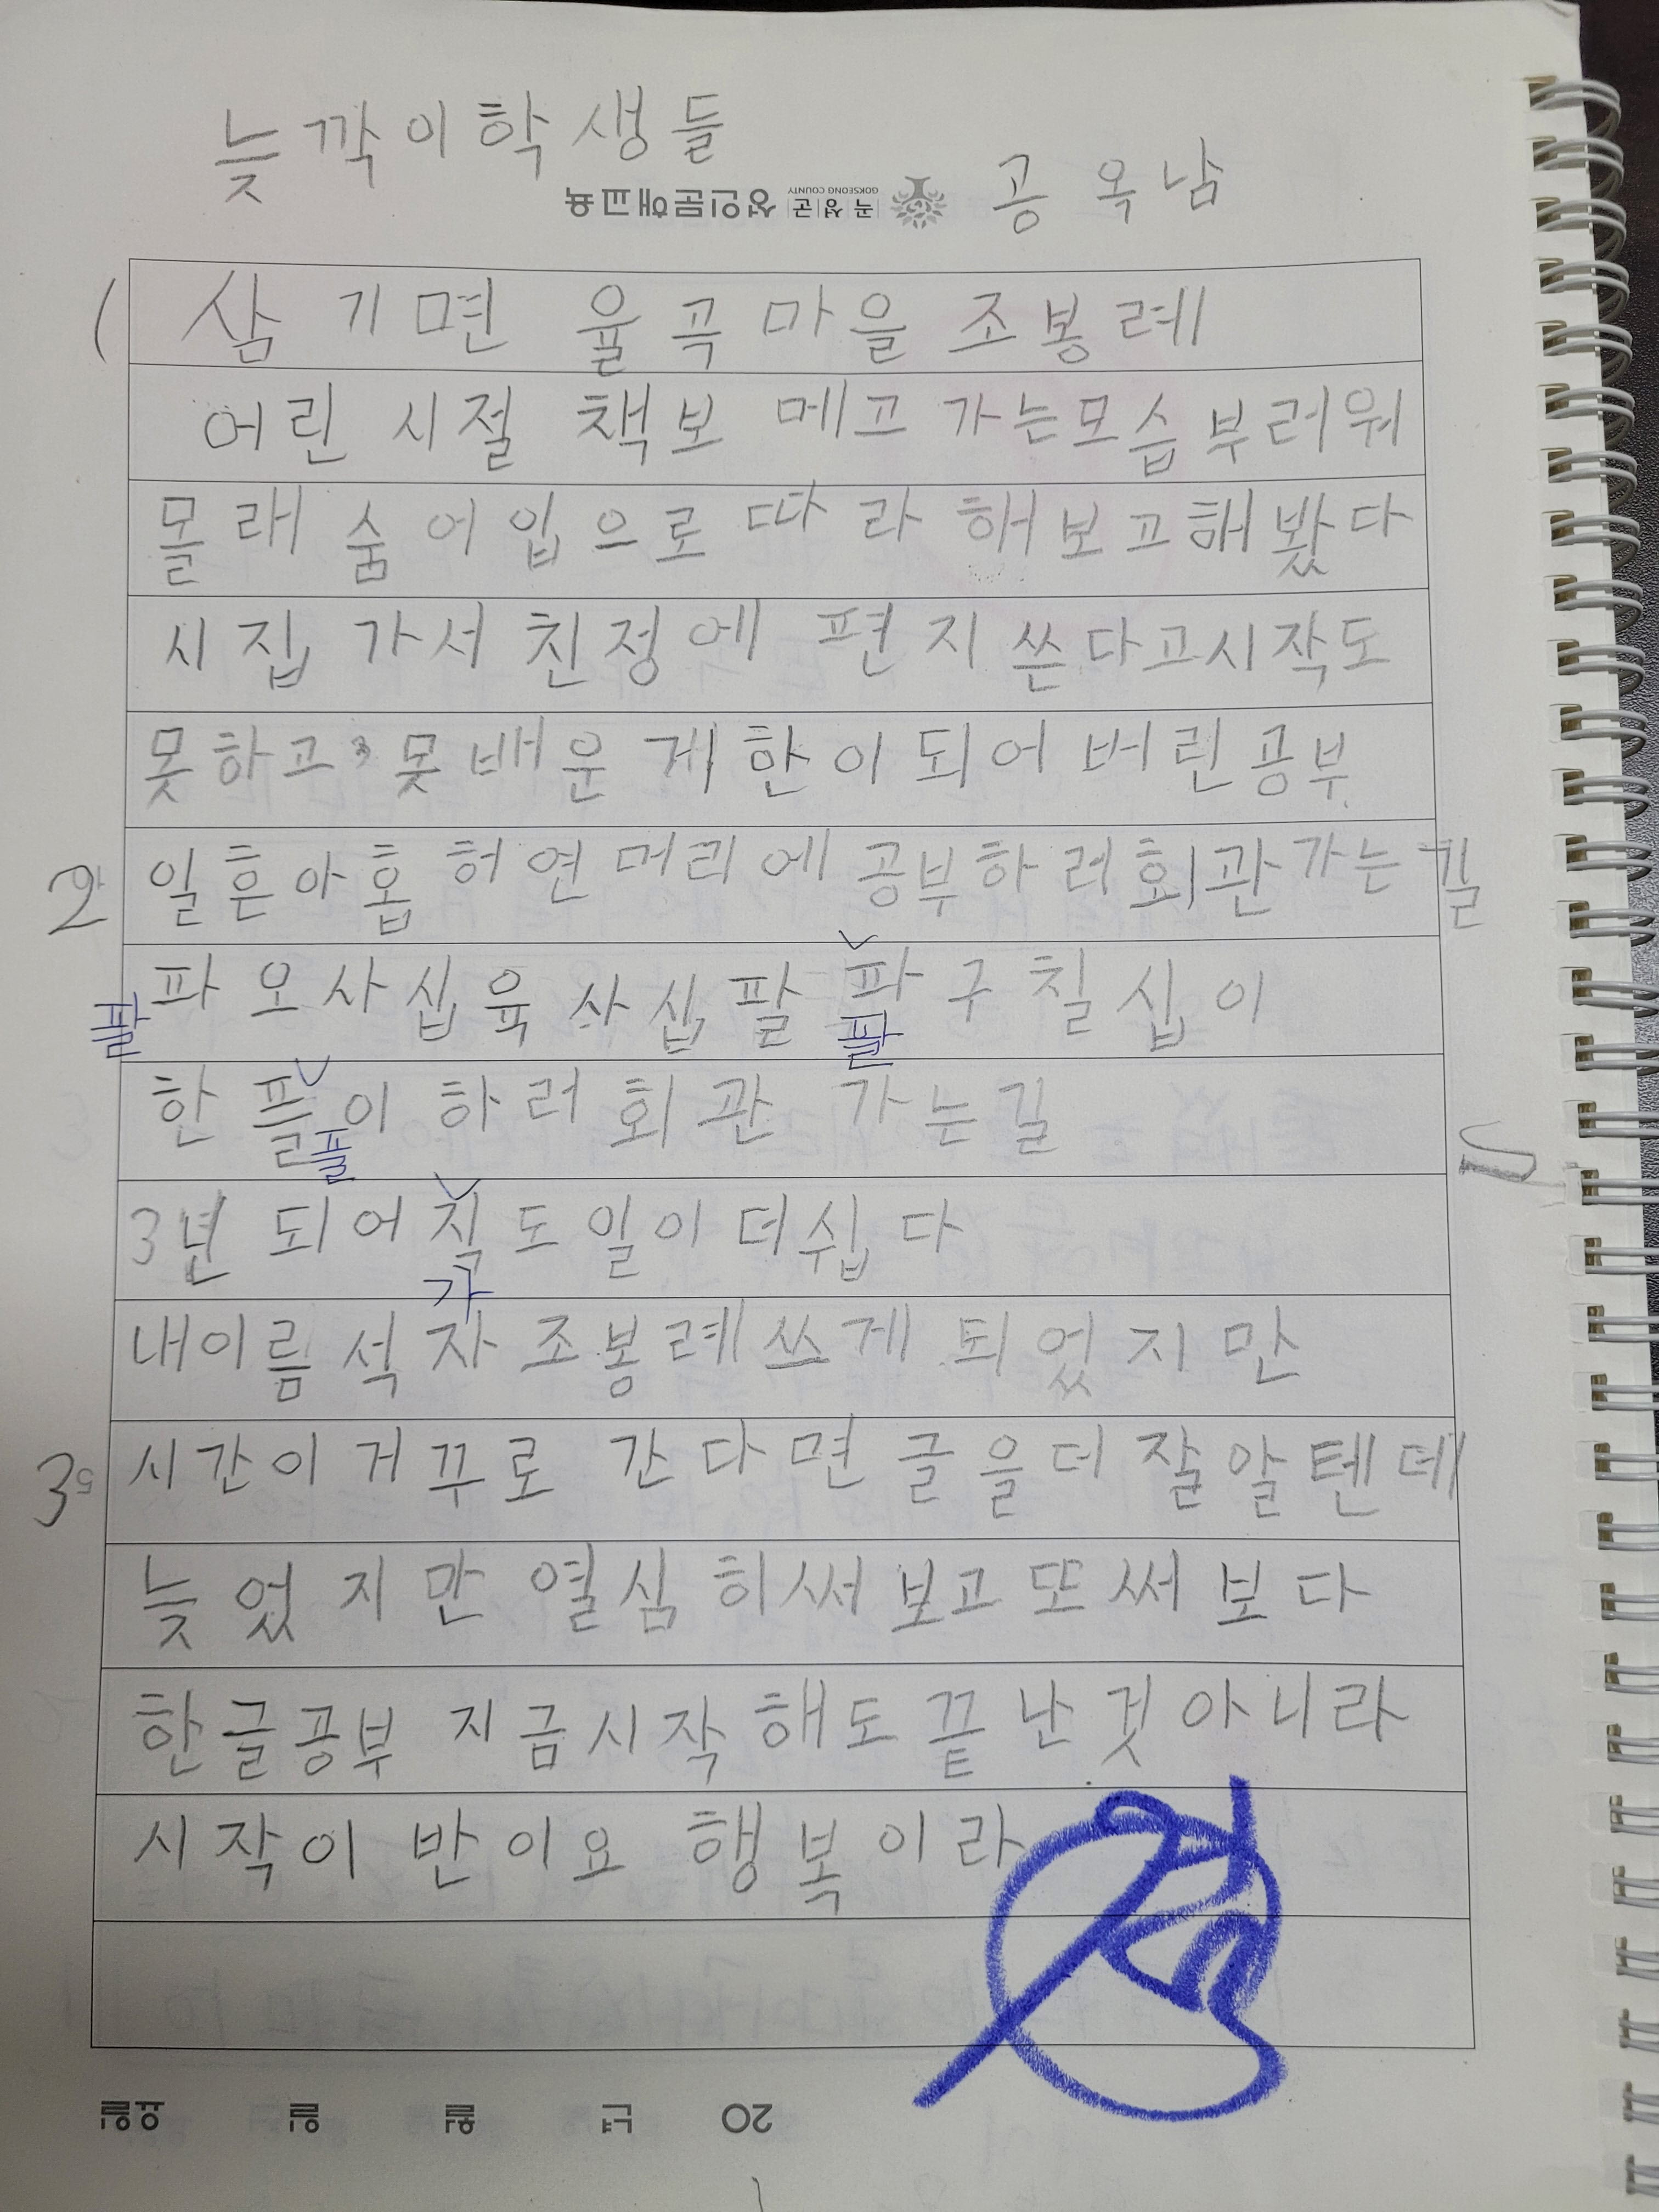 늦깍이학생들
공옥남
성인문해교육 곡성군 GOKSEONG COUNTY
1 삼기면 율곡마을 조봉례
어린 시절 책보 메고 가는모습부러워
몰래 숨어입으로 따라 해보고해봤다
시집 가서 친정에 편지 쓴다고시작도
못하고 못배운 게한이되어버린공부
2 일흔아홉허연머리에공부하러회관가는길
파오사십육사십팔 파구칠십이
팔 팔
한플이하러회관 가는길
풀
3년 되어직도일이더쉽다
가
내이름석자조봉례쓰게 되었지만
3 시간이거꾸로 간다면글을더잘알텐데
늦었지만열심히써보고또써보다
한글공부 지금시작해도끝난것아니라
시작이 반이요 행복이라
20